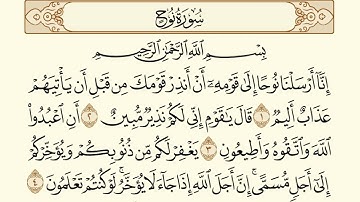 سُورَةُ نُوحٍ
بِسْمِ ٱللَّهِ ٱلرَّحْمَٰنِ ٱلرَّحِيمِ
إِنَّآ أَرْسَلْنَا نُوحًا إِلَىٰ قَوْمِهِۦٓ أَنْ أَنذِرْ قَوْمَكَ مِن قَبْلِ أَن يَأْتِيَهُمْ
عَذَابٌ أَلِيمٌ ١ قَالَ يَٰقَوْمِ إِنِّي لَكُمْ نَذِيرٌ مُّبِينٌ ٢ أَنِ ٱعْبُدُوا۟
ٱللَّهَ وَٱتَّقُوهُ وَأَطِيعُونِ ٣ يَغْفِرْ لَكُم مِّن ذُنُوبِكُمْ وَيُؤَخِّرْكُمْ
إِلَىٰٓ أَجَلٍ مُّسَمًّى ۚ إِنَّ أَجَلَ ٱللَّهِ إِذَا جَآءَ لَا يُؤَخَّرُ ۖ لَوْ كُنتُمْ تَعْلَمُونَ ٤